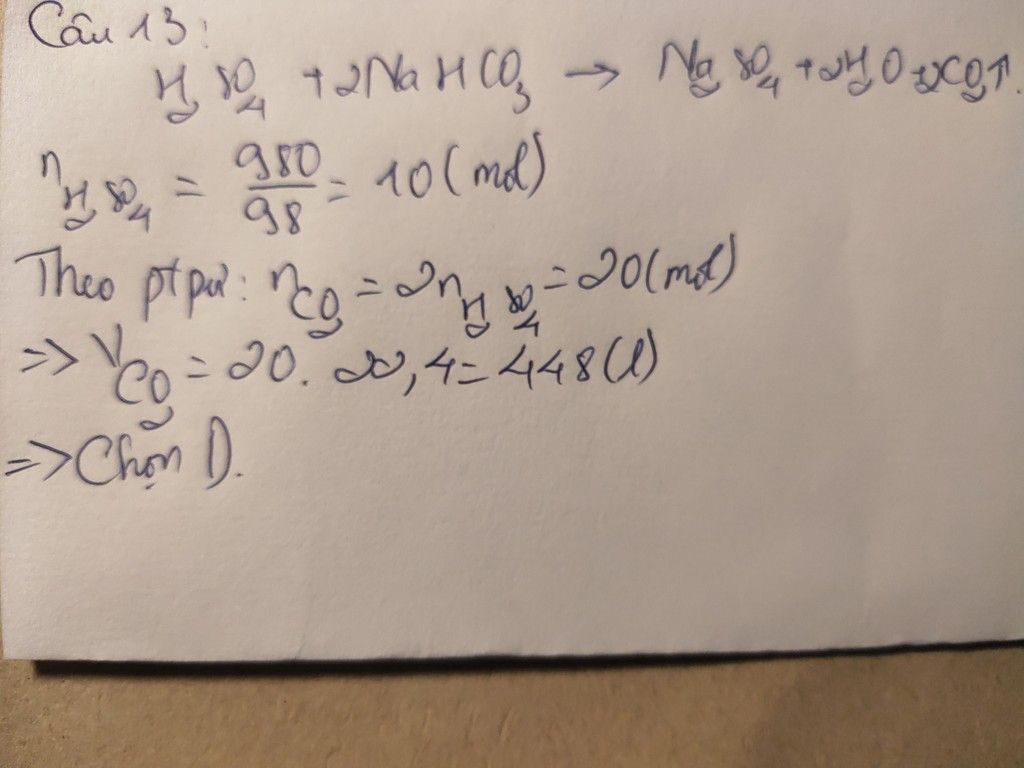 Câu 13:
H₂SO₄ + 2NaHCO₃ → Na₂SO₄ + 2H₂O + 2CO₂↑.
n H₂SO₄ = 980/98 = 10 (mol)
Theo ptpư: nCO₂ = 2nH₂SO₄ = 20 (mol)
=> VCO₂ = 20. 22,4 = 448 (l)
=> Chọn D.